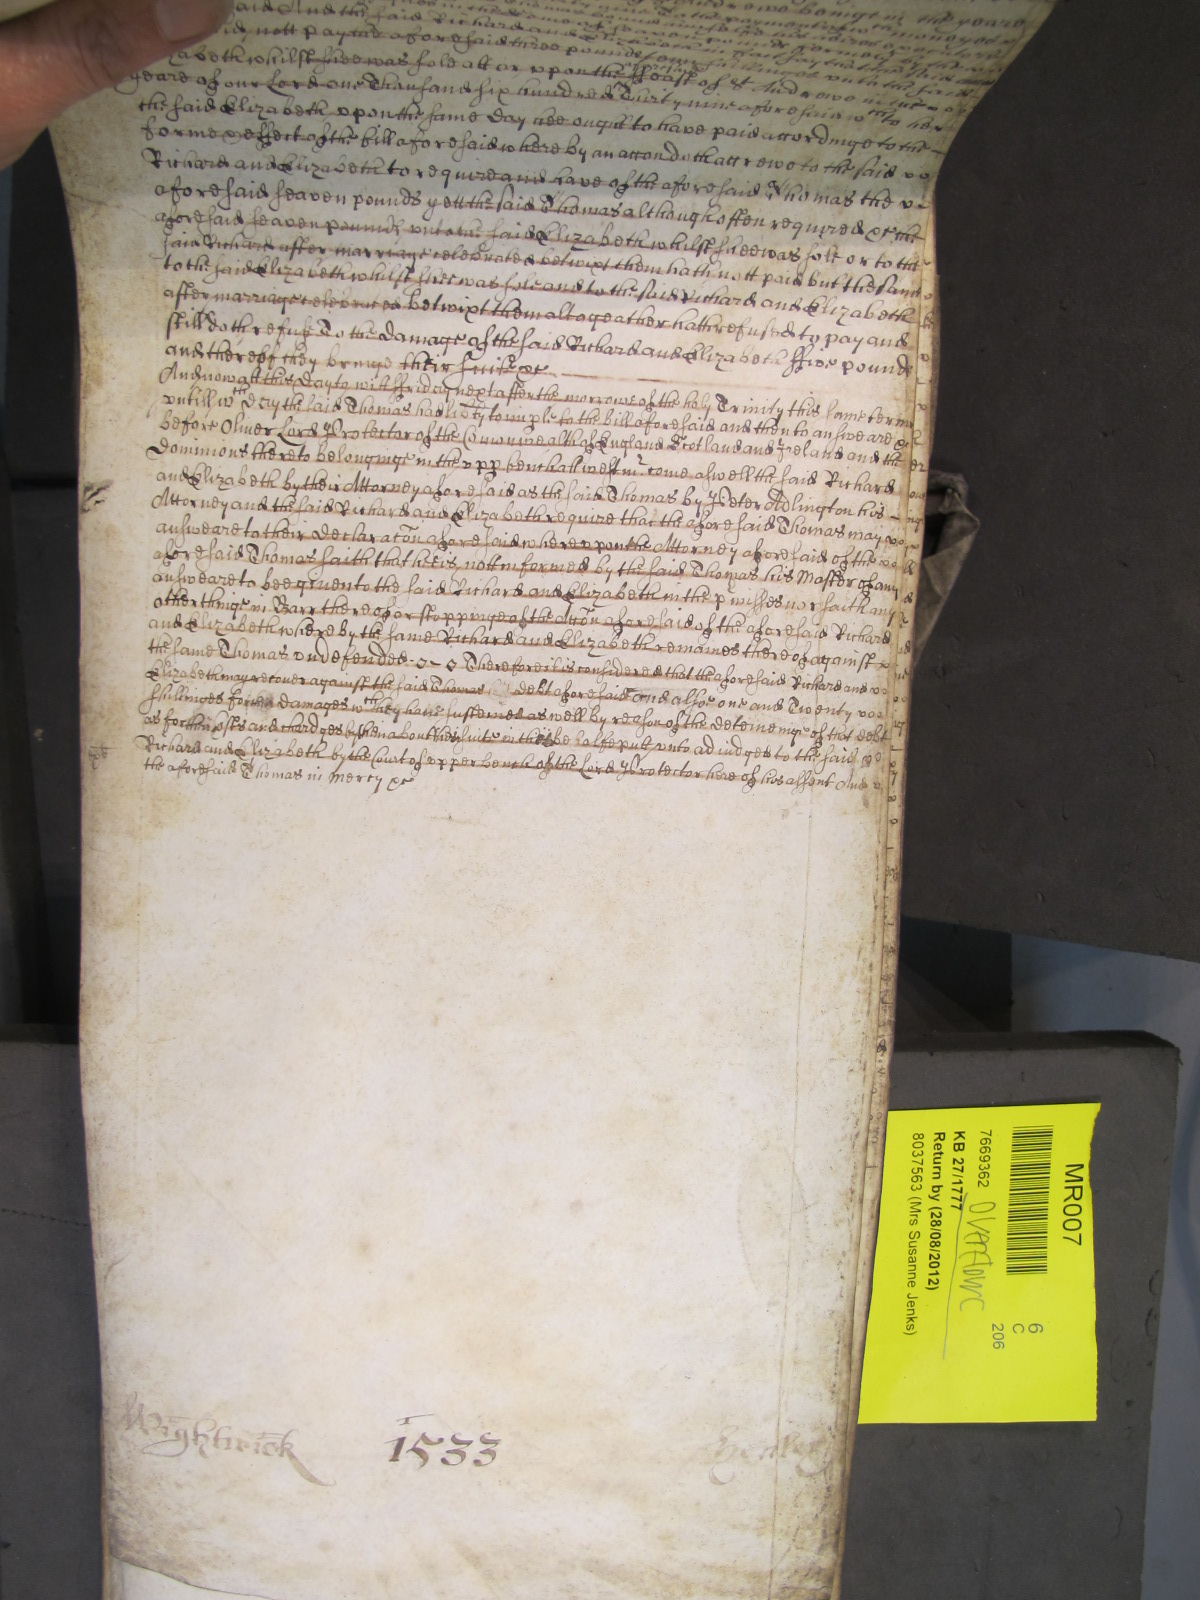 said And the said Richard and
not pay the aforesaid three pounds
zabeth whilst shee was sole att or upon the ffeast of St Andrewe in the
yeare of our Lord one Thousand six hundred Thirty nine aforesaid wch to her
the said Elizabeth upon the same day hee ought to have paid accordinge to the
forme & effect of the bill aforesaid whereby an accon doth accrewe to the said
Richard and Elizabeth to require and have of the aforesaid Thomas the
aforesaid seaven pounds yett the said Thomas although often required &c the
aforesaid seaven pounds unto the said Elizabeth whilst shee was sole or to the
said Richard after marriage celebrated betwixt them hath nott paid but the same
to the said Elizabeth whilst shee was sole and to the said Richard and Elizabeth
after marriage celebrated betwixt them altogeather hath refused to pay and
still doth refuse To the damage of the said Richard and Elizabeth ffive pounds
and thereof they bringe their suite &c
And now att this day to witt ffriday next after the morrowe of the holy Trinity this same terme
untill wch day the said Thomas had liberty to imple to the bill aforesaid and then to answeare &c
before Oliver Lord Protector of the Comonwealth of England Scotland and Ireland and the
Dominions thereto belonginge in the upp bench att westmr come aswell the said Richard
and Elizabeth by their Attorney aforesaid as the said Thomas by Peter Adlington his
Attorney and the said Richard and Elizabeth require that the aforesaid Thomas may
answeare to their declaraton aforesaid whereupon the Attorney aforesaid of the
aforesaid Thomas saith that hee is nott informed by the said Thomas his Master of any
answeare to bee given to the said Richard and Elizabeth in the pmisses nor saith any
other thinge in Barr thereof or stoppinge of the Accon aforesaid of the aforesaid Richard
and Elizabeth whereby the same Richard and Elizabeth remaines thereof against
the same Thomas undefended Therefore it is considered that the aforesaid Richard and
Elizabeth may recover against the said Thomas debt aforesaid and alsoe one and Twenty
shillinges for damages wch they have susteined aswell by reason of the deteininge of that debt
as for their costs and chardges by them about their suite in that behalfe putt unto adiudged to the said
Richard and Elizabeth by the Court of upper bench of the Lord Protector here of his assent And
the aforesaid Thomas in mercy &c
Wightwick 1533
MR007
6
C
206
7669362
KB 27/1777
Return by (28/08/2012)
8037563 (Mrs Susanne Jenks)